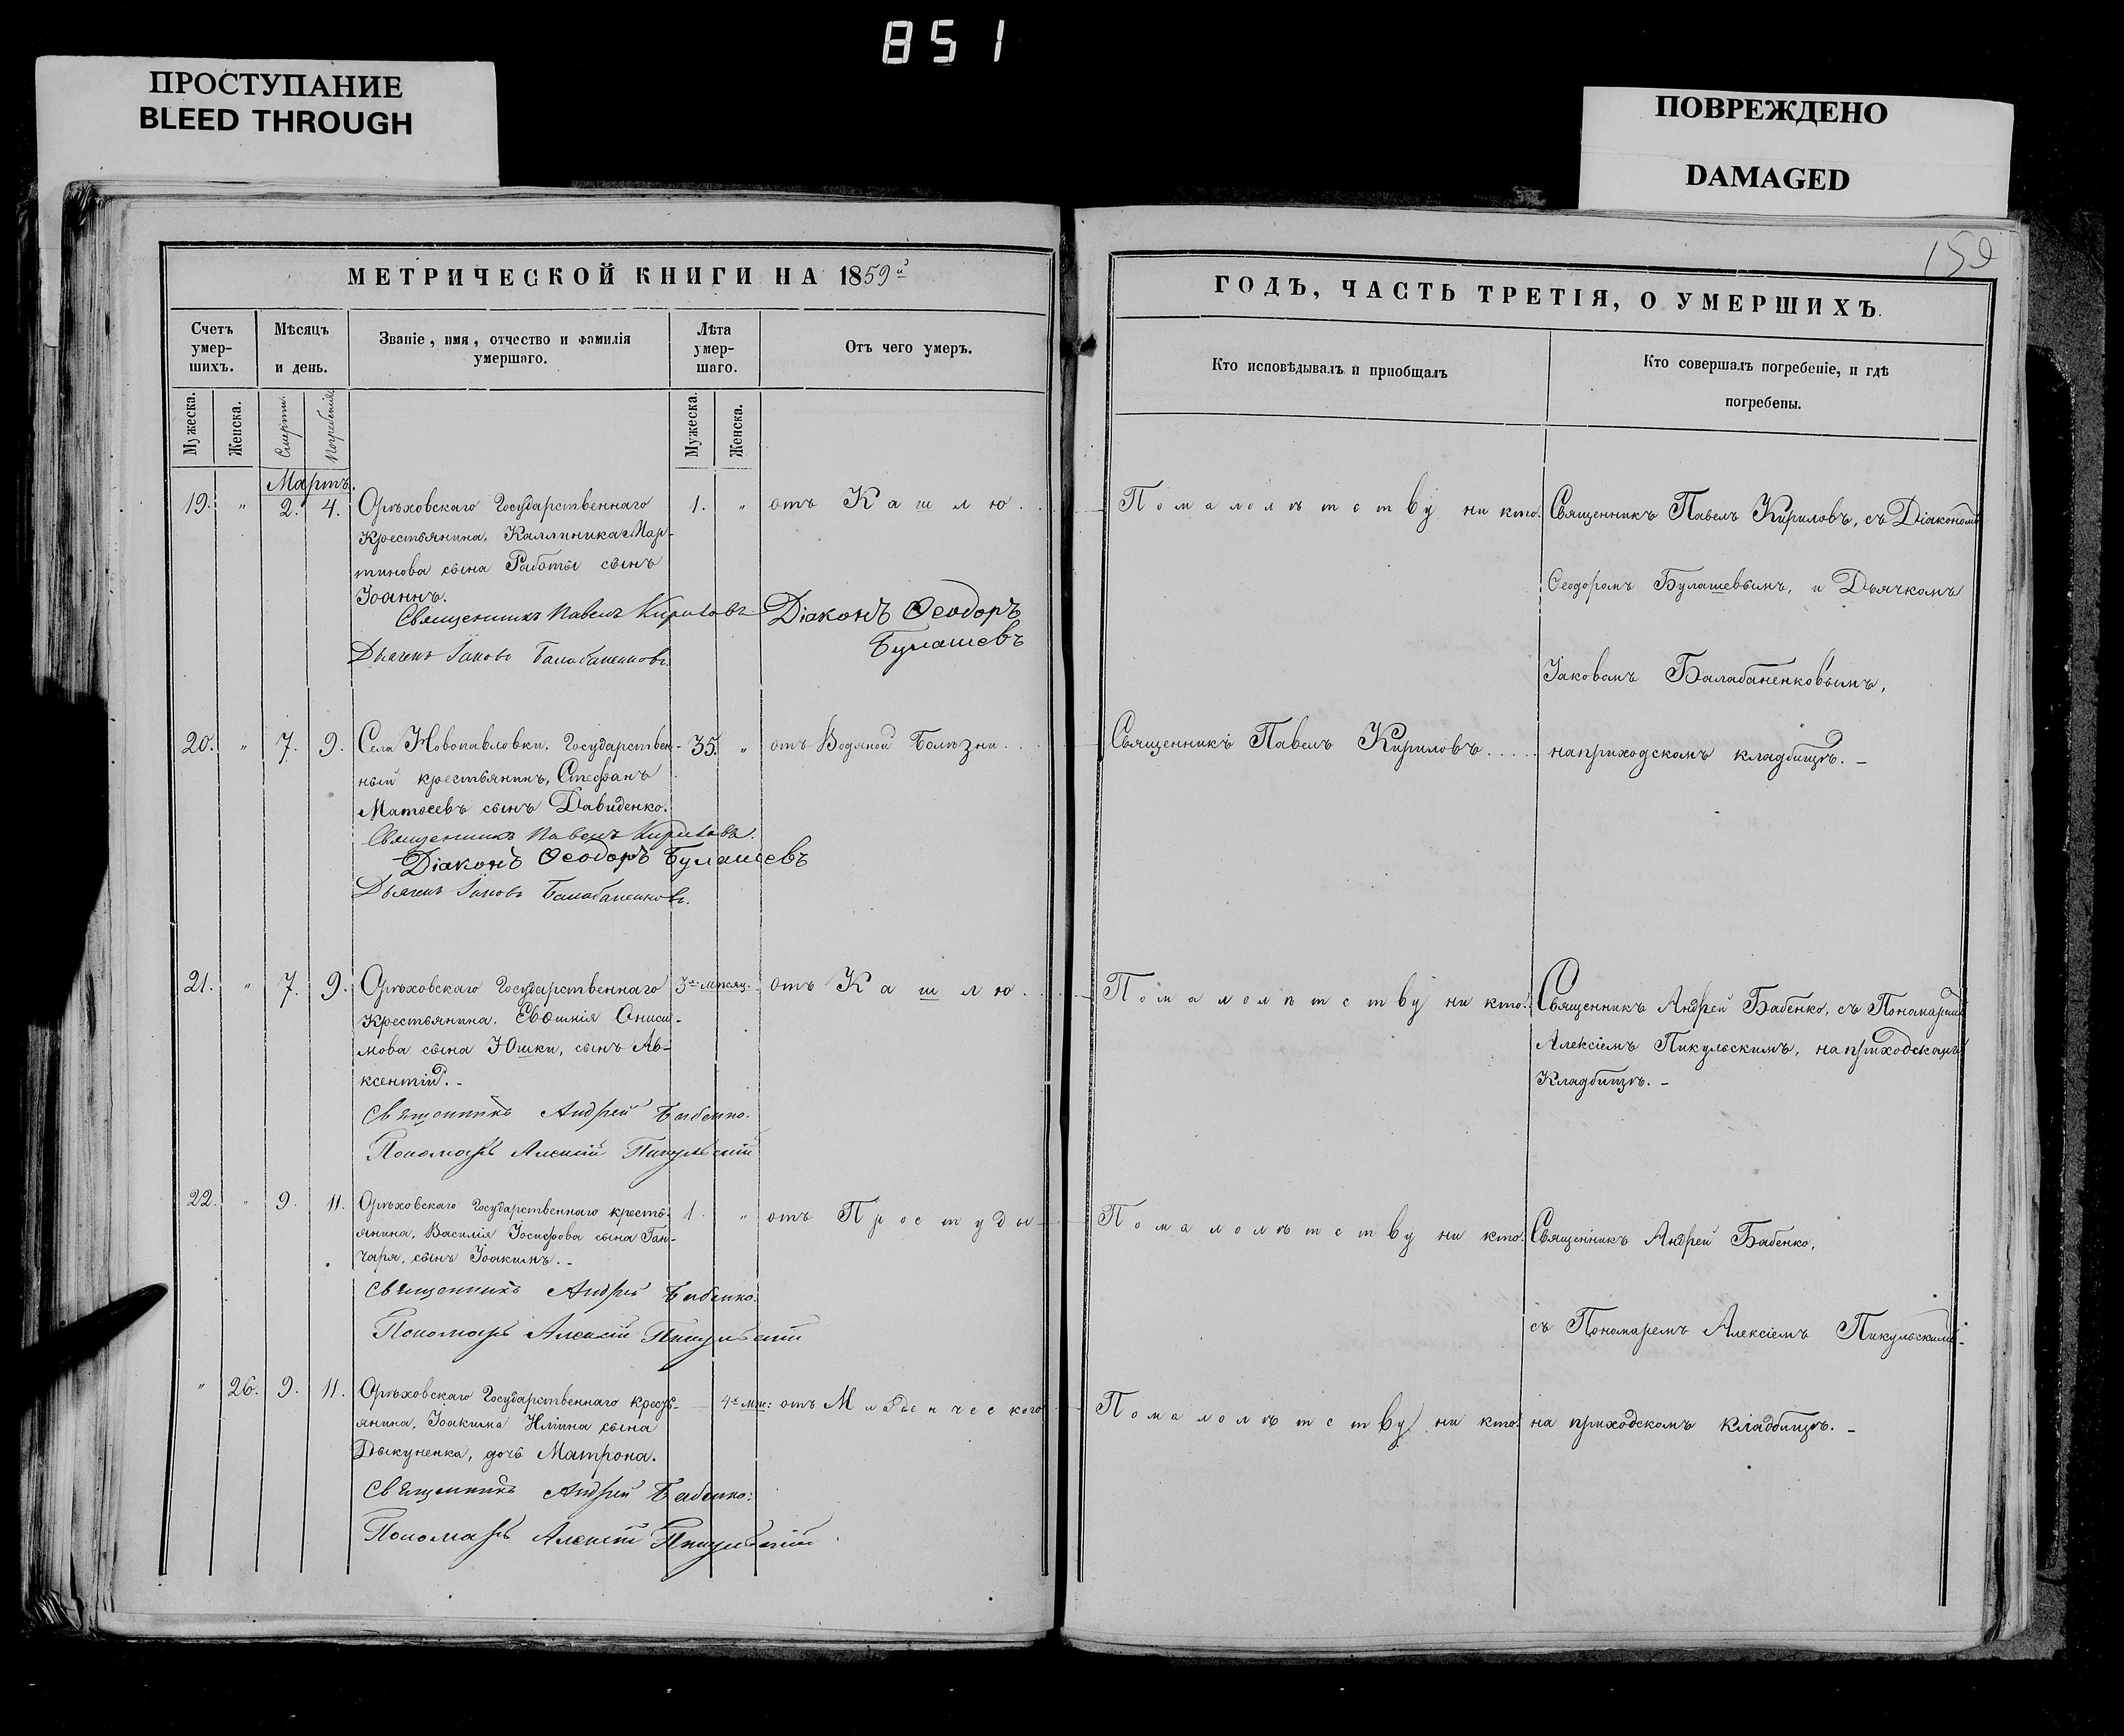 851
ПРОСТУПАНИЕ
BLEED THROUGH
ПОВРЕЖДЕНО
DAMAGED
МЕТРИЧЕСКОЙ КНИГИ НА 1859й
Счетъ умер-шихъ.
Мѣсяцъ и день.
Званіе, имя, отчество и фамилія умершаго.
Лѣта умер-шаго.
Отъ чего умеръ.
Мужеска.
Женска.
Смерти.
Погребенія.
Мужеска.
Женска.
Мартъ.
19. " 2. 4. Орѣховскаго Государственнаго 1. " отъ Кашлю.
Крестьянина, Каллиника Мар-
тинова сына Работы сынъ
Іоаннъ.
Священникъ Павелъ Кириловъ Діаконъ Ѳеодоръ
Булашевъ
Дьячекъ Іаковъ Балабаненковъ.
20. " 7. 9. Села Новопавловки, Государствен- 35. " отъ Водяной Болѣзни...
ный крестьянинъ, Стефанъ
Матѳеевъ сынъ Давиденко.
Священникъ Павелъ Кириловъ.
Діаконъ Ѳеодоръ Булашевъ
Дьячекъ Іаковъ Балабаненковъ.
21. " 7. 9. Орѣховскаго Государственнаго 3хъ мѣсяц. отъ Кашлю.
Крестьянина, Евѳимія Ониси-
мова сына Юшки, сынъ Ав-
ксентій. -
Священникъ Андрей Бабенко.
Пономарь Алексій Пикульскій
22. " 9. 11. Орѣховскаго Государственнаго кресть- 1. " отъ Простуды
янина, Василія Іосифова сына Ган-
чаря, сынъ Іоакимъ. -
Священникъ Андрей Бабенко.
Пономарь Алексій Пикульскій
" 26. 9. 11. Орѣховскаго Государственнаго крест- 4х мѣс: отъ Младенческого
янина, Іоакима Иліина сына
Дыкуненка, дочь Матрона.
Священникъ Андрей Бабенко:
Пономарь Алексій Пикульскій
150
ГОДЪ, ЧАСТЬ ТРЕТІЯ, О УМЕРШИХЪ.
Кто исповѣдывалъ и пріобщалъ
Кто совершалъ погребеніе, и гдѣ
погребены.
Помалолѣтству ни кто. Священникъ Павелъ Кириловъ, съ Діакономъ
Ѳеодоромъ Булашевымъ, и Дьячкомъ
Іаковомъ Балабаненковымъ,
Священникъ Павелъ Кириловъ..... на приходскомъ кладбищѣ. -
Помалолѣтству ни кто. Священникъ Андрей Бабенко, съ Пономаремъ
Алексіемъ Пикульскимъ, на приходскомъ
Кладбищѣ. -
Помалолѣтству ни кто. Священникъ Андрей Бабенко,
съ Пономаремъ Алексіемъ Пикульскимъ -
Помалолѣтству ни кто. на приходскомъ кладбищѣ. -